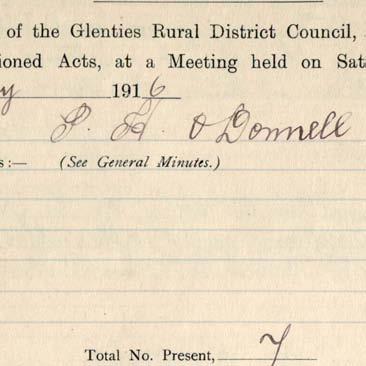 of the Glenties Rural District Council,
tioned Acts, at a Meeting held on Sat
y 1916
P. H. O'Donnell
s:— (See General Minutes.)
Total No. Present, 7